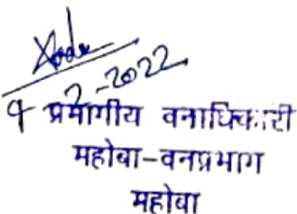 9-2-2022
प्रभागीय वनाधिकारी
महोबा-वनप्रभाग
महोबा